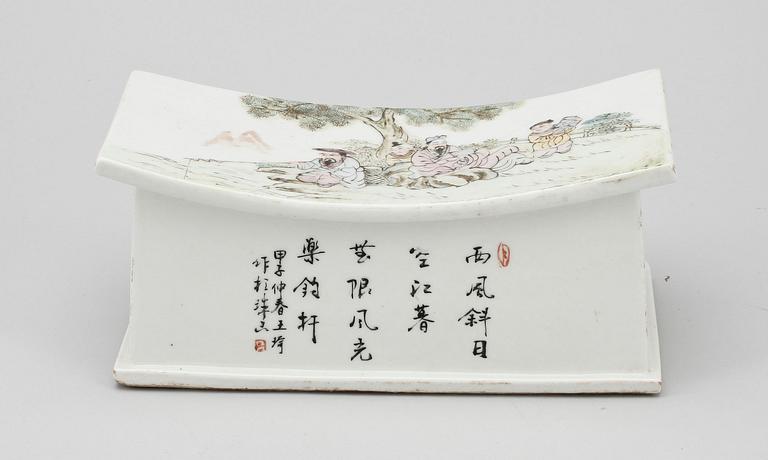 西風斜日
空江暮
無限風光
樂釣杆
甲子仲春王琦
作於珠山